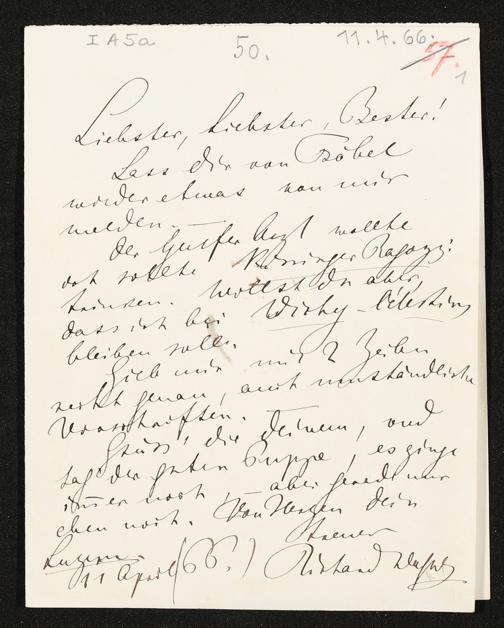 I A5a
50.
11.4.66.
57.
1
Liebster, liebster, Bester!
Lass dir von Fröbel
wieder etwas von mir
melden. —
Der Genfer Arzt wollte
ich sollte Ragozi:
trinken. Wolltest du aber,
dass ich bei Vichy - Célestins
bleiben solle.
Gieb mir mit 2 Zeilen
recht genau, auch umständliche
Vorschriften.
Grüss' die Deinen, und
sag' der guten Puppe, es ginge
immer noch, — aber gerade nur
eben noch. Von Herzen dein
treuer
Luzern.
11 April (66.) Richard Wagner